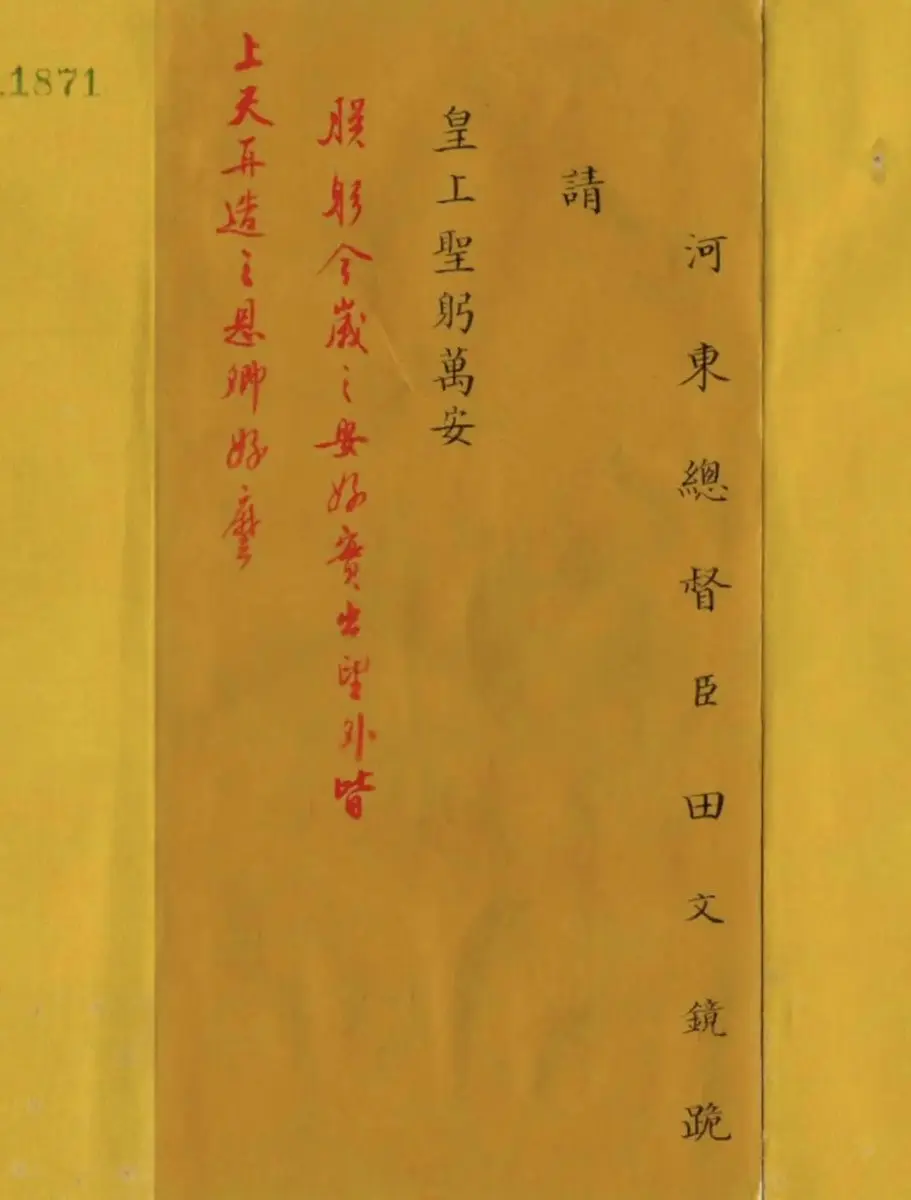 河東總督臣田文鏡跪
請
皇上聖躬萬安
朕躬今歲之安好實出望外皆
上天再造之恩卿好麼
1871